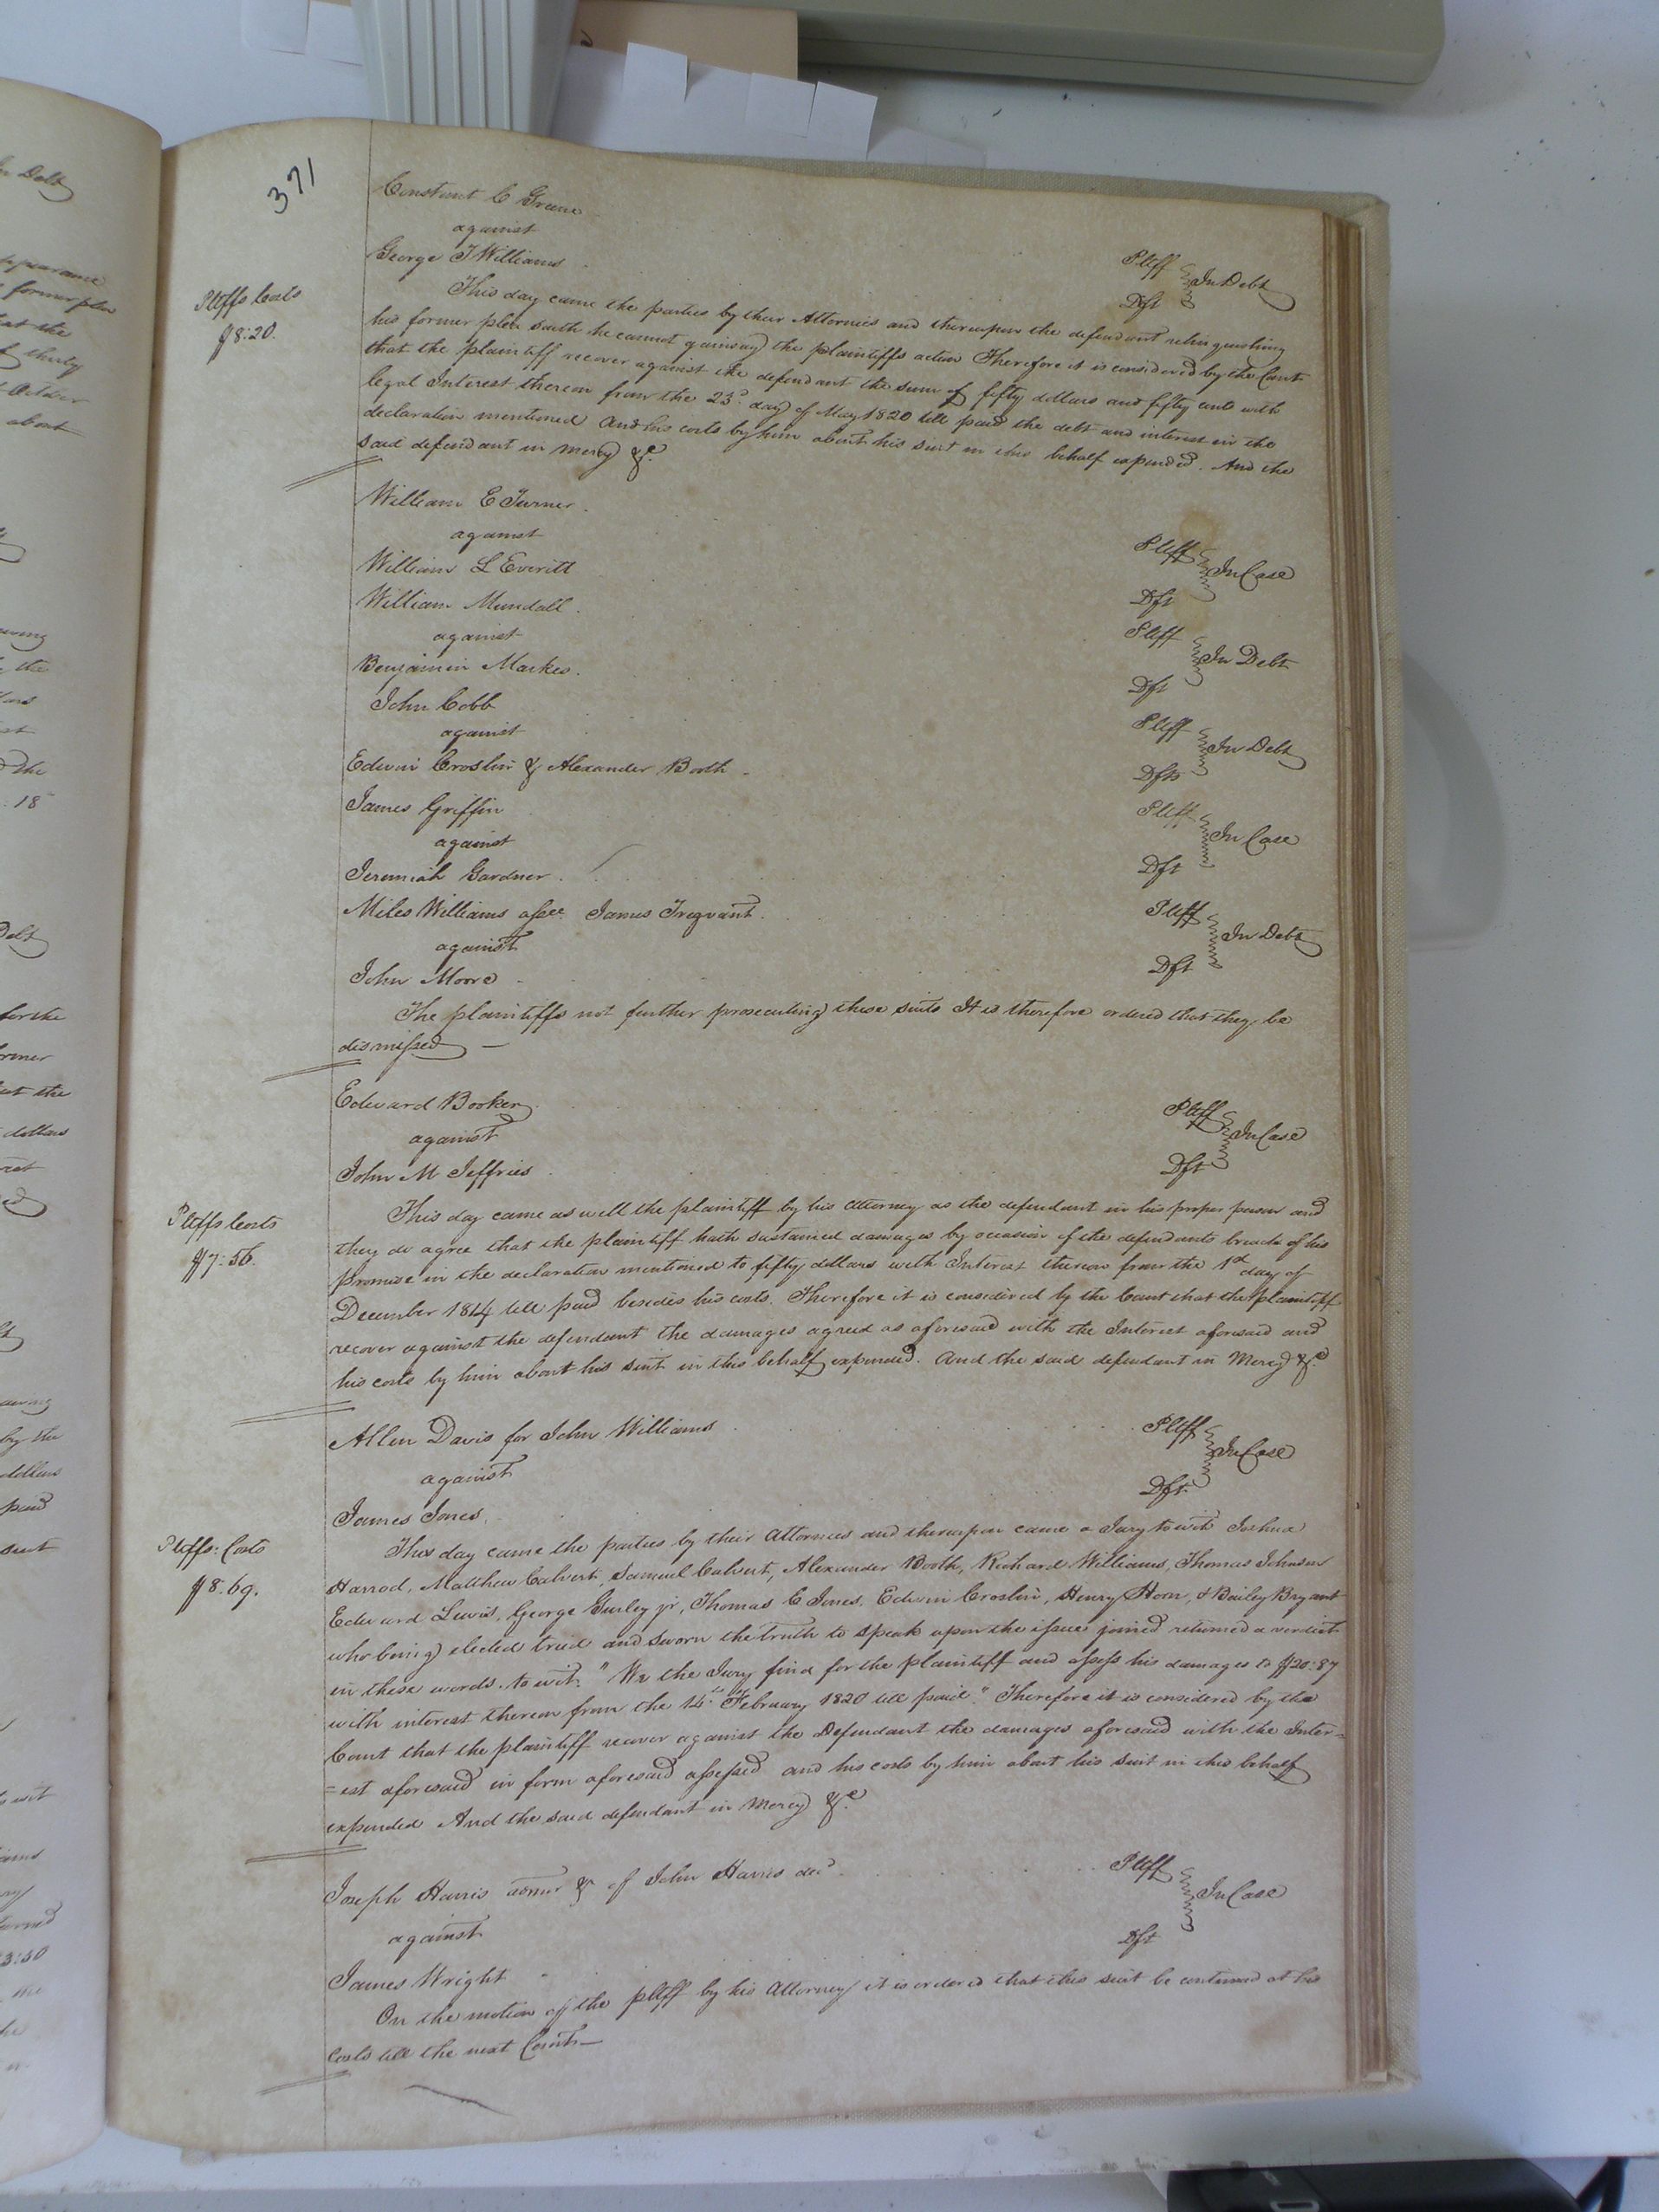 371
Constant C Greene
against
Pltff In Debt
George T Williams
Dft
Pltffs Costs
$8:20.
This day came the parties by their Attornies and thereupon the defendant relinquishing
his former plea saith he cannot gainsay the plaintiffs action Therefore it is considered by the Court
that the plaintiff recover against the defendant the sum of fifty dollars and fifty cents with
legal Interest thereon from the 23d. day of May 1820 till paid the debt and interest in the
declaration mentioned And his costs by him about his suit in this behalf expended. And the
said defendant in Mercy &c.
William E Turner.
against
Pltff In Case
William L Everitt
Dft
William Mundall.
Pltff
against
In Debt
Benjamin Markes.
Dft
John Cobb
Pltff
against
In Debt
Edwin Croslin & Alexander Booth
Dfts
James Griffin
Pltff
against
In Case
Jeremiah Gardner.
Dft
Miles Williams assee. James Trezvant.
Pltff
against
In Debt
John Moore
Dft
The plaintiffs not further prosecuting these suits It is therefore ordered that they be
dismissed —
Edward Booker
Pltff
against
In Case
John M Jeffries
Dft
Pltffs Costs
$7:56.
This day came as well the plaintiff by his attorney as the defendant in his proper person and
they do agree that the plaintiff hath sustained damages by occasion of the defendants breach of his
promise in the declaration mentioned to fifty dollars with Interest thereon from the 1st day of
December 1814 till paid besides his costs. Therefore it is considered by the Court that the plaintiff
recover against the defendant the damages agreed as aforesaid with the Interest aforesaid and
his costs by him about his suit in this behalf expended. And the said defendant in Mercy &c
Allen Davis for John Williams
Pltff
against
In Case
James Jones.
Dft.
Pltffs: Costs
$8:69.
This day came the parties by their Attornies and thereupon came a Jury to wit Joshua
Harrod, Matthew Calvert, Samuel Calvert, Alexander Booth, Richard Williams, Thomas Johnson
Edward Lewis, George Gurley jr, Thomas C Jones, Edwin Croslin, Henry Horn, & Bailey Bryant
who being elected tried and sworn the truth to speak upon the issue joined returned a verdict
in these words. to wit. "We the Jury find for the plaintiff and assess his damages to $20:87
with interest thereon from the 14th February 1820 till paid." Therefore it is considered by the
Court that the plaintiff recover against the Defendant the damages aforesaid with the Inter=
=est aforesaid in form aforesaid assessed and his costs by him about his suit in this behalf
expended And the said defendant in Mercy &c.
Joseph Harris admr &c of John Harris decd.
Pltff
against
In Case
James Wright
Dft
On the motion of the pltff by his Attorney it is ordered that this suit be continued at his
Costs till the next Court—